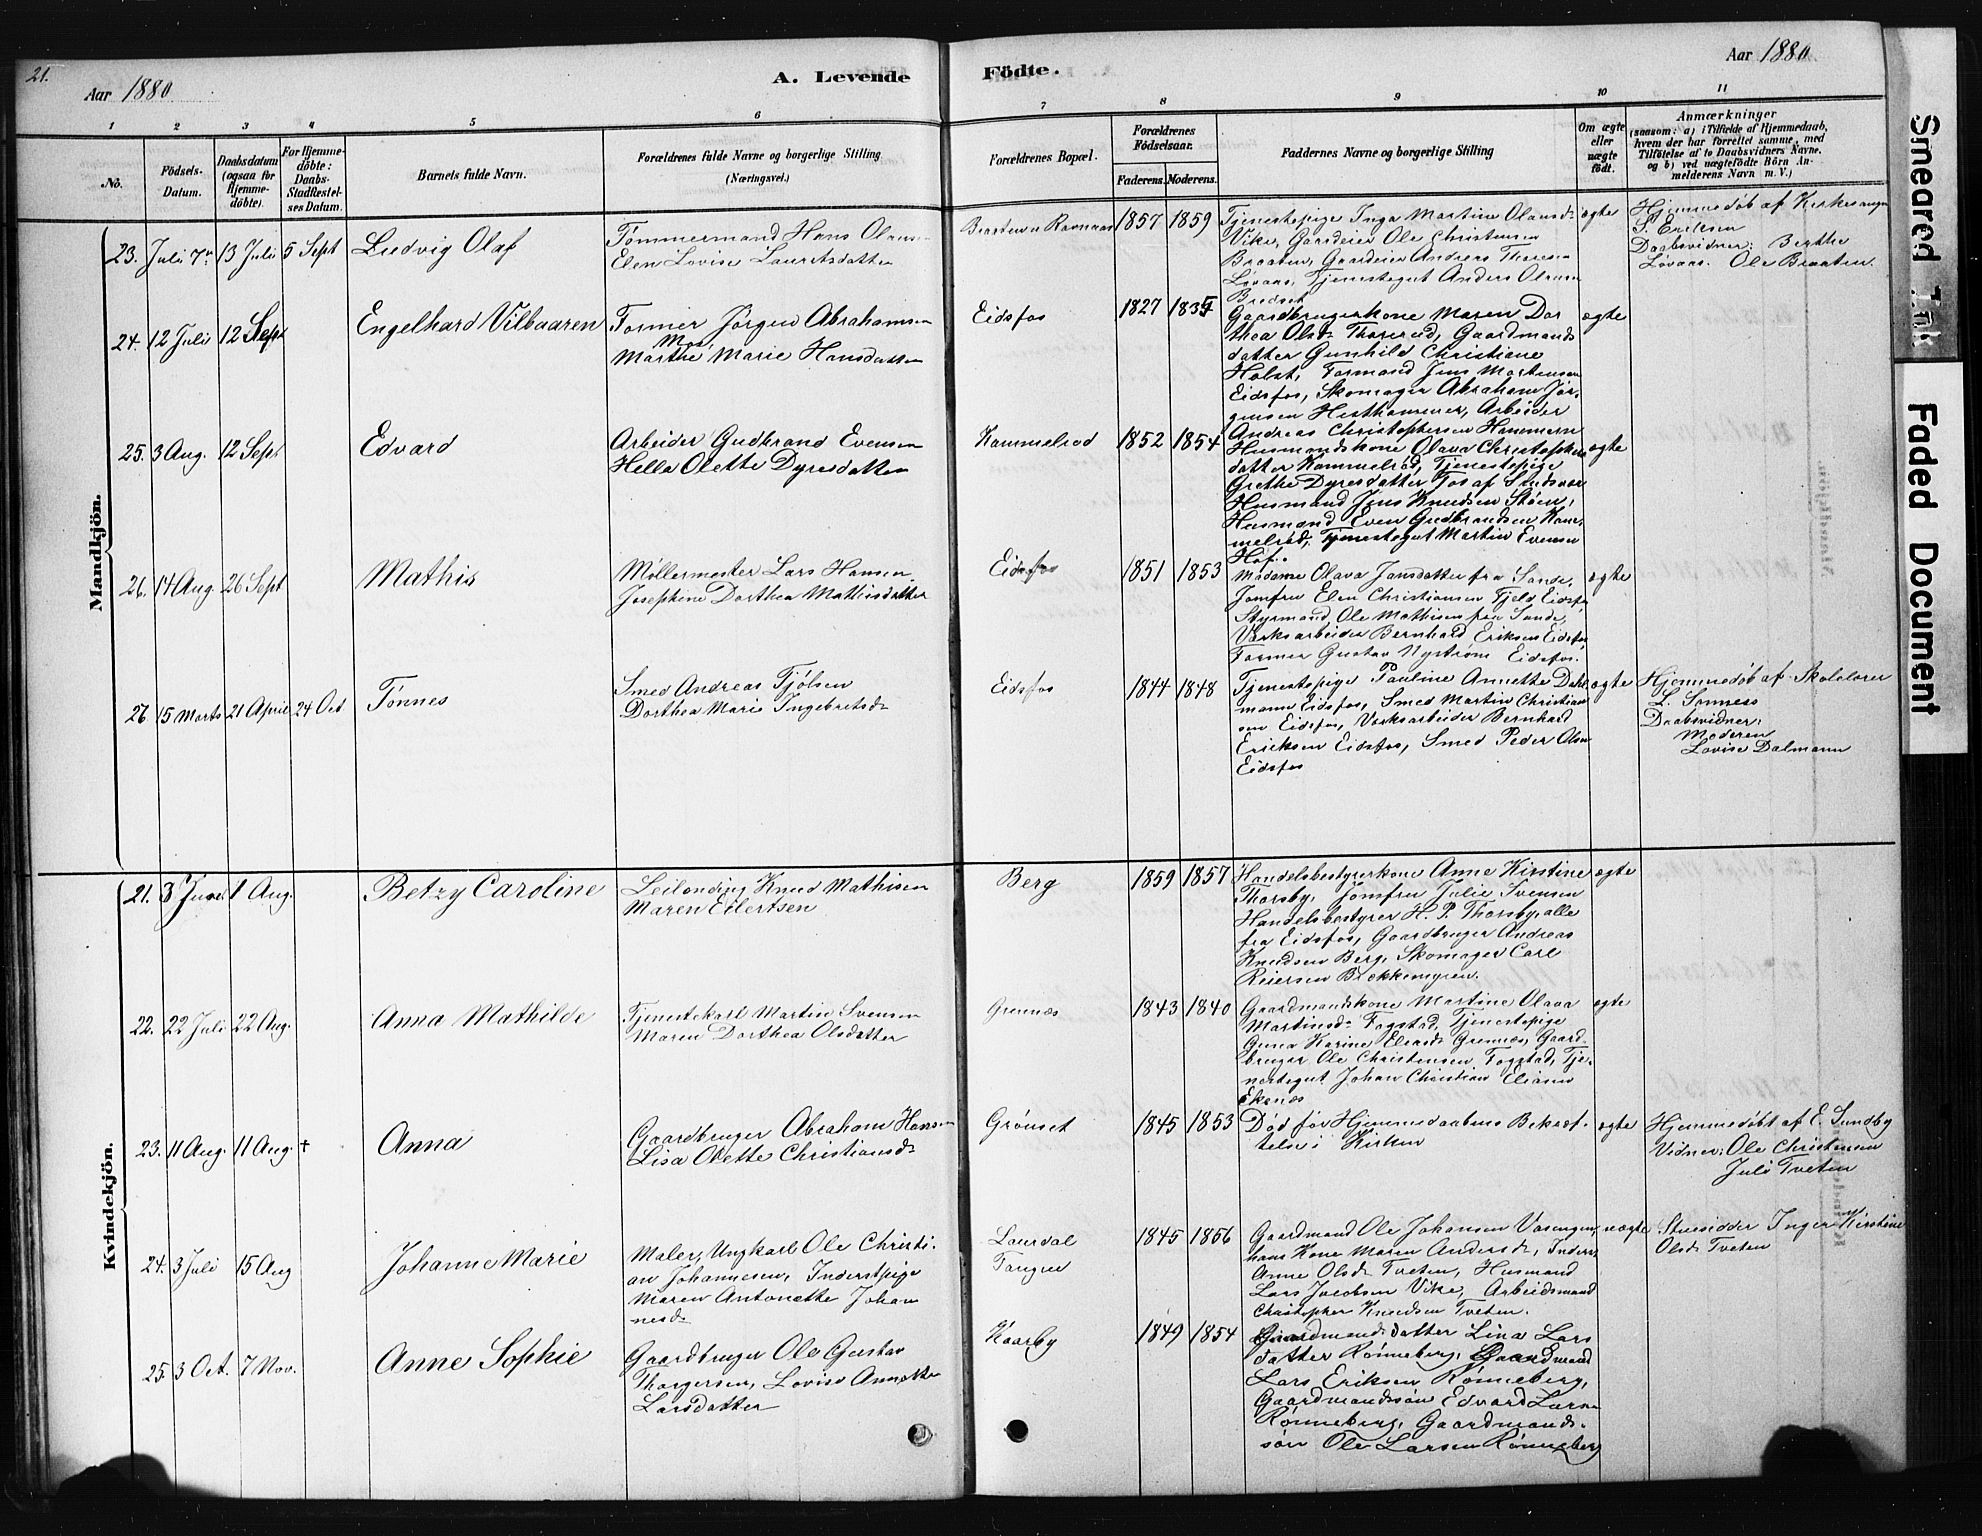 21.
Aar 1880
A. Levende
1 2 3 4 5 6
No.
Födsels-
Datum.
Daabsdatum
(ogsaa for
Hjemme-
döbte).
For Hjemme-
döbte:
Daabs-
Stadfæstel-
ses Datum.
Barnets fulde Navn.
Forældrenes fulde Navne og borgerlige Stilling
(Næringsvei.)
Mandkjön.
23. Juli 7 13 Juli 5 Sept Ludvig Olaf
Tømmermand Hans Olausen
Elen Lovise Lauritsdatter
24. 12 Juli 12 Sept Engelhard Vilbaaren
Former Jørgen Abrahamsen
Marthe Marie Hansdatter
25. 3 Aug. 12 Sept Edvard
Arbeider Gudbrand Evensen
Hella Olette Dyresdatter
26. 14 Aug. 26 Sept Mathis
Møllermester Lars Hansen
Josephine Dorthea Mathisdatter
27 15 Marts 21 April 24 Oct Tønnes
Smed Andreas Tjølsen
Dorthea Marie Ingebretsd
Kvindekjön.
21. 3 Juni 1 Aug. Betzy Caroline
Leilending Knud Mathisen
Maren Eilertsen
22. 22 Juli 22 Aug. Anna Mathilde
Tjenestekarl Martin Svensen
Maren Dorthea Olsdatter
23. 11 Aug. 11 Aug. † Anna
Gaardbruger Abraham Hansen
Lisa Olette Christiansd
24. 3 Juli 15 Aug Johanne Marie
Maler, Ungkarl Ole Christi-
an Johannesen, Inderstpige
Maren Antonette Johan
nesd
25. 3 Oct. 7 Nov. Anne Sophie
Gaardbruger Ole Gustav
Thorgersen, Lovise Annette
Larsdatter
Födte.
Aar 1880
7 8 9 10 11
Forældrenes Bopæl.
Forældrenes
Födselsaar.
Faderens. Moderens.
Faddernes Navne og borgerlige Stilling
Om ægte
eller
uægte
födt.
Anmærkninger
(saasom: a) i Tilfælde af Hjemmedaab,
hvem der har forrettet samme, med
Tilföielse af to Daabsvidners Navne.
og b) ved uægtefödte Börn An-
melderens Navn m. V.)
Braaten u Ravnaas 1857 1859
Tjenestepige Inga Martine Olausd
Vike, Gaardeier Ole Christensen
Braaten, Gaardeier Andreas Thores
Løvaas, Tjenestegut Anders Olausen
Bredset
ægte
Hjemmedøb af Kirkesanger
P. Eriksen
Daabsvidner: Berthe
Løvaas. Ole Braaten.
Eidsfos 1827 1835
Gaardbrugerkone Maren Dor
thea Olsd Thorerud, Gaardmands
datter Gunhild Christiane
Holst, Formand Jens Mortensen
Eidsfos, Skomager Abraham Jør-
gensen Hesthammer, Arbeider
Andreas Christophersen Hammern
ægte
Kammelrød 1852 1854
Husmandskone Olava Christophers
datter Kammelrød, Tjenestepige
Grethe Dyresdatter
Husmand Jens Knudsen Støen,
Husmand Even Gudbrandsen Kam-
melrød, Tjenestegut Martin Evensen
Hof.
ægte
Eidsfos 1851 1853
Madame Olava Jansdatter fra Sande,
Jomfru Elen Christiansen Fjeld Eidsfos
Styrmand Ole Mathisen fra Sande,
Værksarbeider Bernhard Eriksen Eidsfos
Former Gustav Nystrøm Eidsfos.
ægte
Eidsfos 1844 1848
Tjenestepige Pauline Annette Dahl
mann Eidsfos, Smed Martin Christian
sen Eidsfos, Værksarbeider Bernhard
Eriksen Eidsfos, Smed Peder Olsen
Eidsfos
ægte
Hjemmedøb af Skolelærer
L. Smness
Daabsvidner,
Moderen
Lovise Dalmann
Berg 1859 1857
Handelsbestyrerkone Anne Kirstine
Thorsby, Jomfru Julie Svensen
Handelsbestyrer H. P. Thorsby, alle
fra Eidsfos, Gaardbruger Andreas
Knudsen Berg, Skomager Carl
Reiersen Bækkemyren.
ægte
Grennes 1843 1840
Gaardmandskone Martine Olava
Martinsd Fogstad, Tjenestepige
Guna Karine Eliasd Grennes, Gaard-
bruger Ole Christensen Fogstad, Tje-
nestegut Johan Christian Eliasen
Ekenæs
ægte
Grønset 1845 1853
Død før Hjemmedaabens Bekræf-
telse i Kirken
ægte
Hjemmedøbt af E. Sundby
Vidner, Ole Christensen
Juli Tveten
Laurdal
Tangen 1845 1856
Gaardmand Ole Johansen Vasengen,
hans Kone Maren Andersd, Inders
Anne Olsd Tveten, Husmand
Lars Jacobsen Vike, Arbeidsmand
Christopher Knudsen Tveten.
uægte
Stuesidder Inger Kirstine
Olsd Tveten
Kaarby 1849 1854
Gaardmandsdatter Lina Lars
datter Rønneberg, Gaardmand
Lars Eriksen Rønneberg,
Gaardmandssøn Edvard Larsen
Rønneberg, Gaardmands-
søn Ole Larsen Rønneberg
Smeared Ink
Faded Document